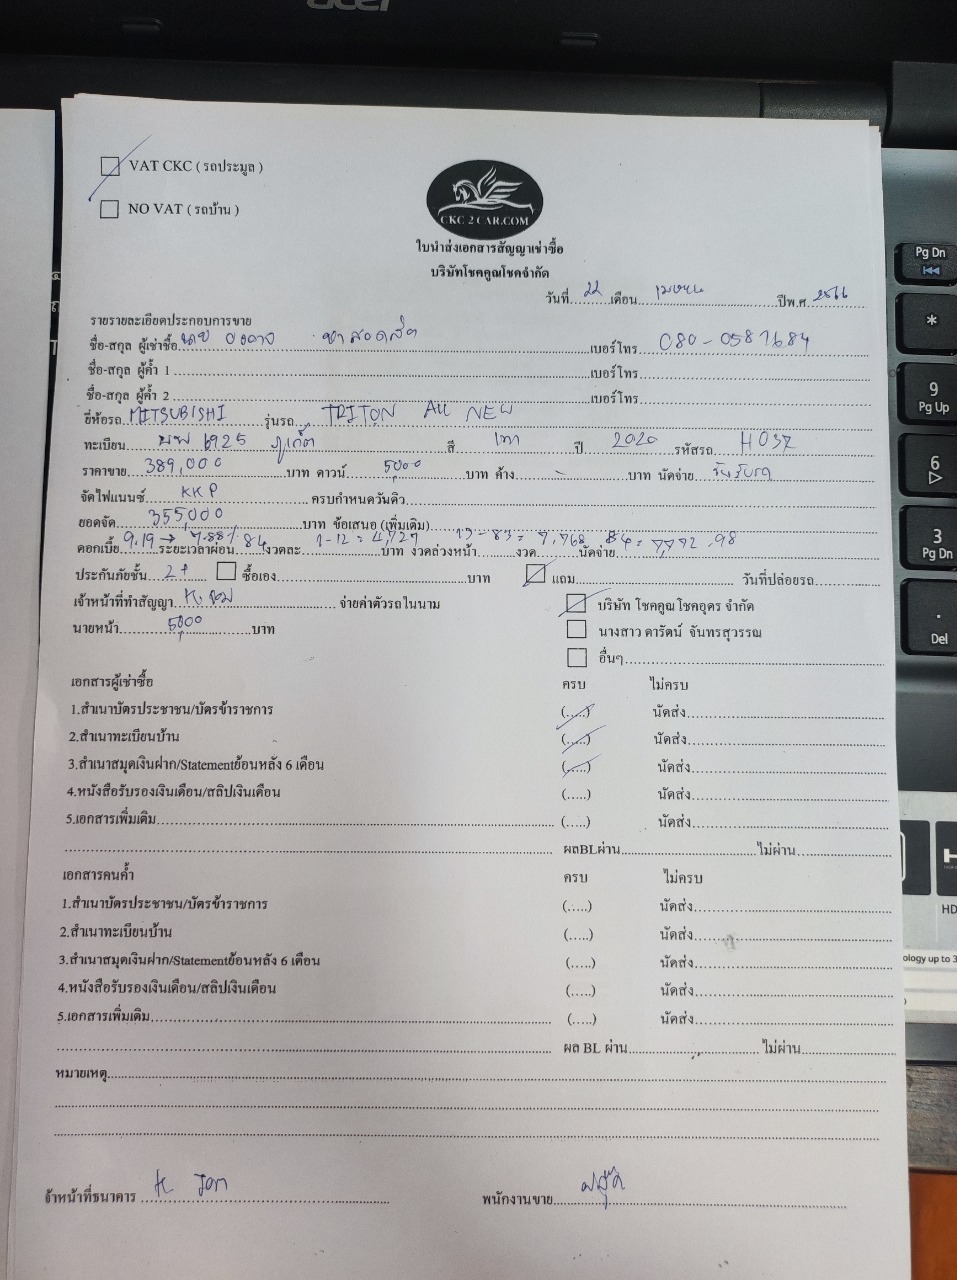 acer
VAT CKC ( รถประมูล )
NO VAT ( รถบ้าน )
CKC 2 CAR.COM
ใบนำส่งเอกสารสัญญาเช่าซื้อ
บริษัทโชคคูณโชคจำกัด
วันที่ 22 เดือน เมษายน ปีพ.ศ. 2566
รายรายละเอียดประกอบการขาย
ชื่อ-สกุล ผู้เช่าซื้อ นาย เบอร์โทร 080-0581684
ชื่อ-สกุล ผู้ค้ำ 1 เบอร์โทร
ชื่อ-สกุล ผู้ค้ำ 2 เบอร์โทร
ยี่ห้อรถ MITSUBISHI รุ่นรถ TRITON ALL NEW
ทะเบียน 6925 ภูเก็ต สี เทา ปี 2020 รหัสรถ H037
ราคาขาย 389,000 บาท ดาวน์ 5000 บาท ค้าง - บาท นัดจ่าย วันรับรถ
จัดไฟแนนซ์ KKP ครบกำหนดวันคิว
ยอดจัด 355,000 บาท ข้อเสนอ (เพิ่มเติม)
ดอกเบี้ย 9.19 → 7.88% ระยะเวลาผ่อน 84 งวดละ 1-12 = 4,727 บาท งวดล่วงหน้า 13-83 = 7,768 งวด นัดจ่าย 84 = 7,792.98
ประกันภัยชั้น 2+ ซื้อเอง บาท แถม วันที่ปล่อยรถ
เจ้าหน้าที่ทำสัญญา จ่ายค่าตัวรถในนาม บริษัท โชคคูณโชคอุดร จำกัด
นายหน้า 5000 บาท นางสาว ดารัตน์ จันทรสุวรรณ
อื่นๆ
เอกสารผู้เช่าซื้อ ครบ ไม่ครบ
1.สำเนาบัตรประชาชน/บัตรข้าราชการ (.....) นัดส่ง
2.สำเนาทะเบียนบ้าน (.....) นัดส่ง
3.สำเนาสมุดเงินฝาก/Statementย้อนหลัง 6 เดือน (.....) นัดส่ง
4.หนังสือรับรองเงินเดือน/สลิปเงินเดือน (.....) นัดส่ง
5.เอกสารเพิ่มเติม (.....) นัดส่ง
ผลBLผ่าน ไม่ผ่าน
เอกสารคนค้ำ ครบ ไม่ครบ
1.สำเนาบัตรประชาชน/บัตรข้าราชการ (.....) นัดส่ง
2.สำเนาทะเบียนบ้าน (.....) นัดส่ง
3.สำเนาสมุดเงินฝาก/Statementย้อนหลัง 6 เดือน (.....) นัดส่ง
4.หนังสือรับรองเงินเดือน/สลิปเงินเดือน (.....) นัดส่ง
5.เอกสารเพิ่มเติม (.....) นัดส่ง
ผล BL ผ่าน ไม่ผ่าน
หมายเหตุ
จ้าหน้าที่ธนาคาร พนักงานขาย
Pg Dn
*
9
Pg Up
6
3
Pg Dn
.
Del
HD
ology up to 3